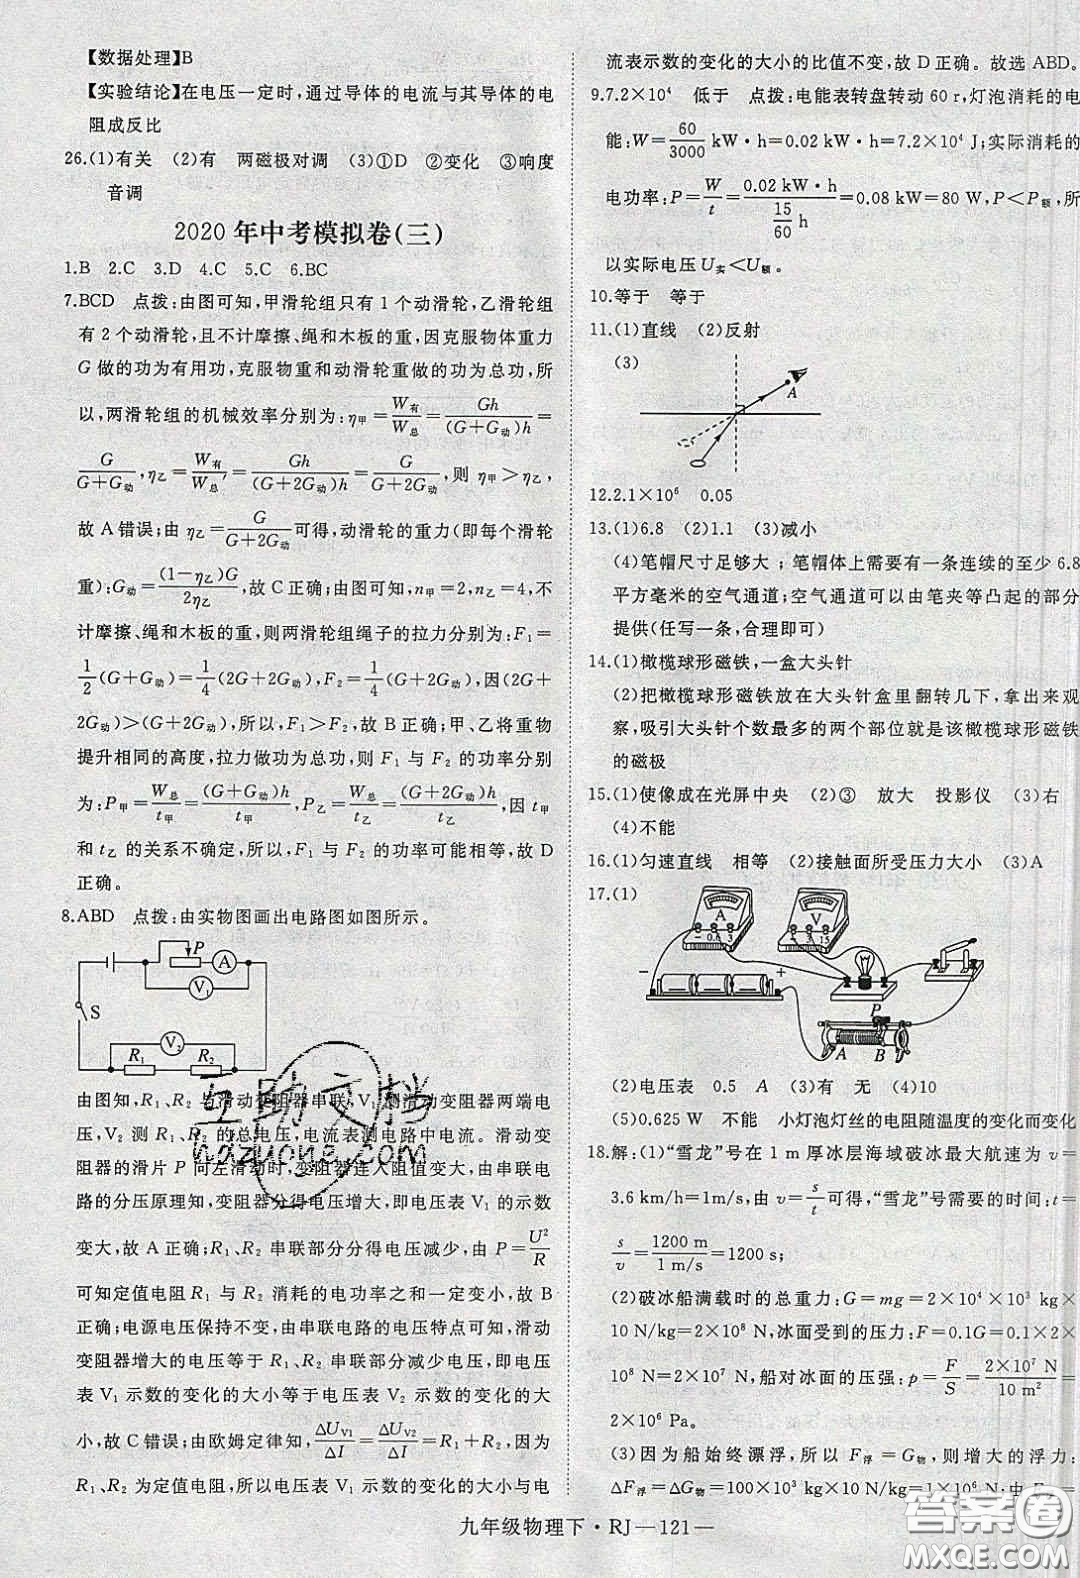 【数据处理】B
【实验结论】在电压一定时,通过导体的电流与其导体的电
阻成反比
26.(1)有关 (2)有 两磁极对调 (3)①D ②变化 ③响度
音调
2020年中考模拟卷(三)
1.B 2.C 3.D 4.C 5.C 6.BC
7.BCD 点拨:由图可知,甲滑轮组只有1个动滑轮,乙滑轮组
有2个动滑轮,且不计摩擦、绳和木板的重,因克服物体重力
G做的功为有用功,克服物重和动滑轮重做的功为总功,所
以,两滑轮组的机械效率分别为:η甲=W有/W总=Gh/(G+G动)h=
G/G+G动,η乙=W有/W总=Gh/(G+2G动)h=G/G+2G动,则η甲>η乙,
故A错误;由η乙=G/G+2G动可得,动滑轮的重力(即每个滑轮
重):G动=(1-η乙)G/2η乙,故C正确;由图可知,n甲=2,n乙=4,不
计摩擦、绳和木板的重,则两滑轮组绳子的拉力分别为:F₁=
1/2(G+G动)=1/4(2G+2G动),F₂=1/4(G+2G动),因(2G+
2G动)>(G+2G动),所以,F₁>F₂,故B正确;甲、乙将重物
提升相同的高度,拉力做功为总功,则F₁与F₂的功率分别
为:P甲=W总/t甲=(G+G动)h/t甲,P乙=W总/t乙=(G+2G动)h/t乙,因t甲
和t乙的关系不确定,所以,F₁与F₂的功率可能相等,故D
正确。
8.ABD 点拨:由实物图画出电路图如图所示。
P A
V₁
S
V₂
R₁ R₂
由图知,R₁、R₂与滑动变阻器串联,V₁测滑动变阻器两端电
压,V₂测R₁、R₂的总电压,电流表测电路中电流。滑动变
阻器的滑片P向左滑动时,变阻器连入阻值变大,由串联电
路的分压原理知,变阻器分得电压增大,即电压表V₁的示数
变大,故A正确;R₁、R₂串联部分分得电压减少,由P=U²/R
可知定值电阻R₁与R₂消耗的电功率之和一定变小,故B
正确;电源电压保持不变,由串联电路的电压特点可知,滑动
变阻器的电压等于R₁、R₂串联部分减少电压,即电压
表V₁示数的变化的大小等于电压表V₂示数的变化的大
小,故C错误;由欧姆定律知,ΔU_V1/ΔI=ΔU_V2/ΔI=R₁+R₂,因为
R₁、R₂为定值电阻,所以电压表V₁示数的变化的大小与电
流表示数的变化的大小的比值不变,故D正确。故选ABD。
9.7.2×10⁴ 低于 点拨:电能表转盘转动60 r,灯泡消耗的电
能:W=60/3000 kW·h=0.02 kW·h=7.2×10⁴ J;实际消耗的
电功率:P=W/t=0.02 kW·h/(15/60 h)=0.08 kW=80 W,P<P额,所
以实际电压U实<U额。
10.等于 等于
11.(1)直线 (2)反射
(3)
A
12.2.1×10⁶ 0.05
13.(1)6.8 (2)1.1 (3)减小
(4)笔帽尺寸足够大;笔帽体上需要有一条连续的至少6.8
平方毫米的空气通道;空气通道可以由笔夹等凸起的部分
提供(任写一条,合理即可)
14.(1)橄榄球形磁铁,一盒大头针
(2)把橄榄球形磁铁放在大头针盒里翻转几下,拿出来观
察,吸引大头针个数最多的两个部位就是该橄榄球形磁铁
的磁极
15.(1)使像成在光屏中央 (2)③ 放大 投影仪 (3)右
(4)不能
16.(1)匀速直线 相等 (2)接触面所受压力大小 (3)A
17.(1)
A - 0.6 3 V - 3 15
- +
P
A B
(2)电压表 0.5 A (3)有 无 (4)10
(5)0.625 W 不能 小灯泡灯丝的电阻随温度的变化而变化
18.解:(1)“雪龙”号在1 m厚冰层海域破冰最大航速为v=
3.6 km/h=1m/s,由v=s/t可得,“雪龙”号需要的时间:t=
s/v=1200 m/1 m/s=1200 s;
(2)破冰船满载时的总重力:G=mg=2×10⁴×10³ kg×
10 N/kg=2×10⁸ N,冰面受到的压力:F=0.1G=0.1×2×
10⁸ N=2×10⁷ N,船对冰面的压强:p=F/S=2×10⁷ N/10 m²=
2×10⁶ Pa。
(3)因为船始终漂浮,所以F浮=G物,则增大的浮力:
ΔF浮=ΔG物=100×10³ kg×10 N/kg=1×10⁶ N;由F
九年级物理下·RJ—121—
互助文档
hdzuoye.com
答案圈
MXQE.COM